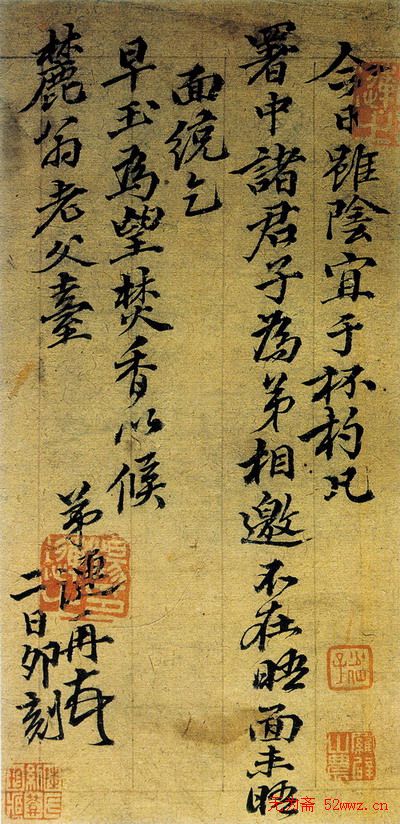 今日雖陰宜于杯杓凡
署中諸君子為弟相邀不在晤面未晤
面統乞
早玉為望焚香以候
麓翁老父臺
弟 再
二日卯刻
天和斋 52wwz.cn